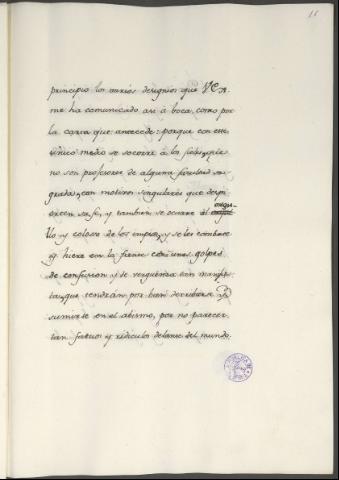 15
principio los varios designios que V.Em.
me ha comunicado así à boca, como por
la carta que antecede: porque con este
unico medio se socorre à los fieles, que
no son profesores de alguna facultad sa
grada, con motivos singulares que des
pierten su fe, y tambien se ocurre al orgu
llo y colera de los impios, y se les combate
y hiere en la frente con unos golpes
de confusion y de verguenza tan manifies
ta, que tendrán por bien derribarse, y
sumirse en el abismo, por no parecer
tan fatuos y ridiculos delante del mundo.